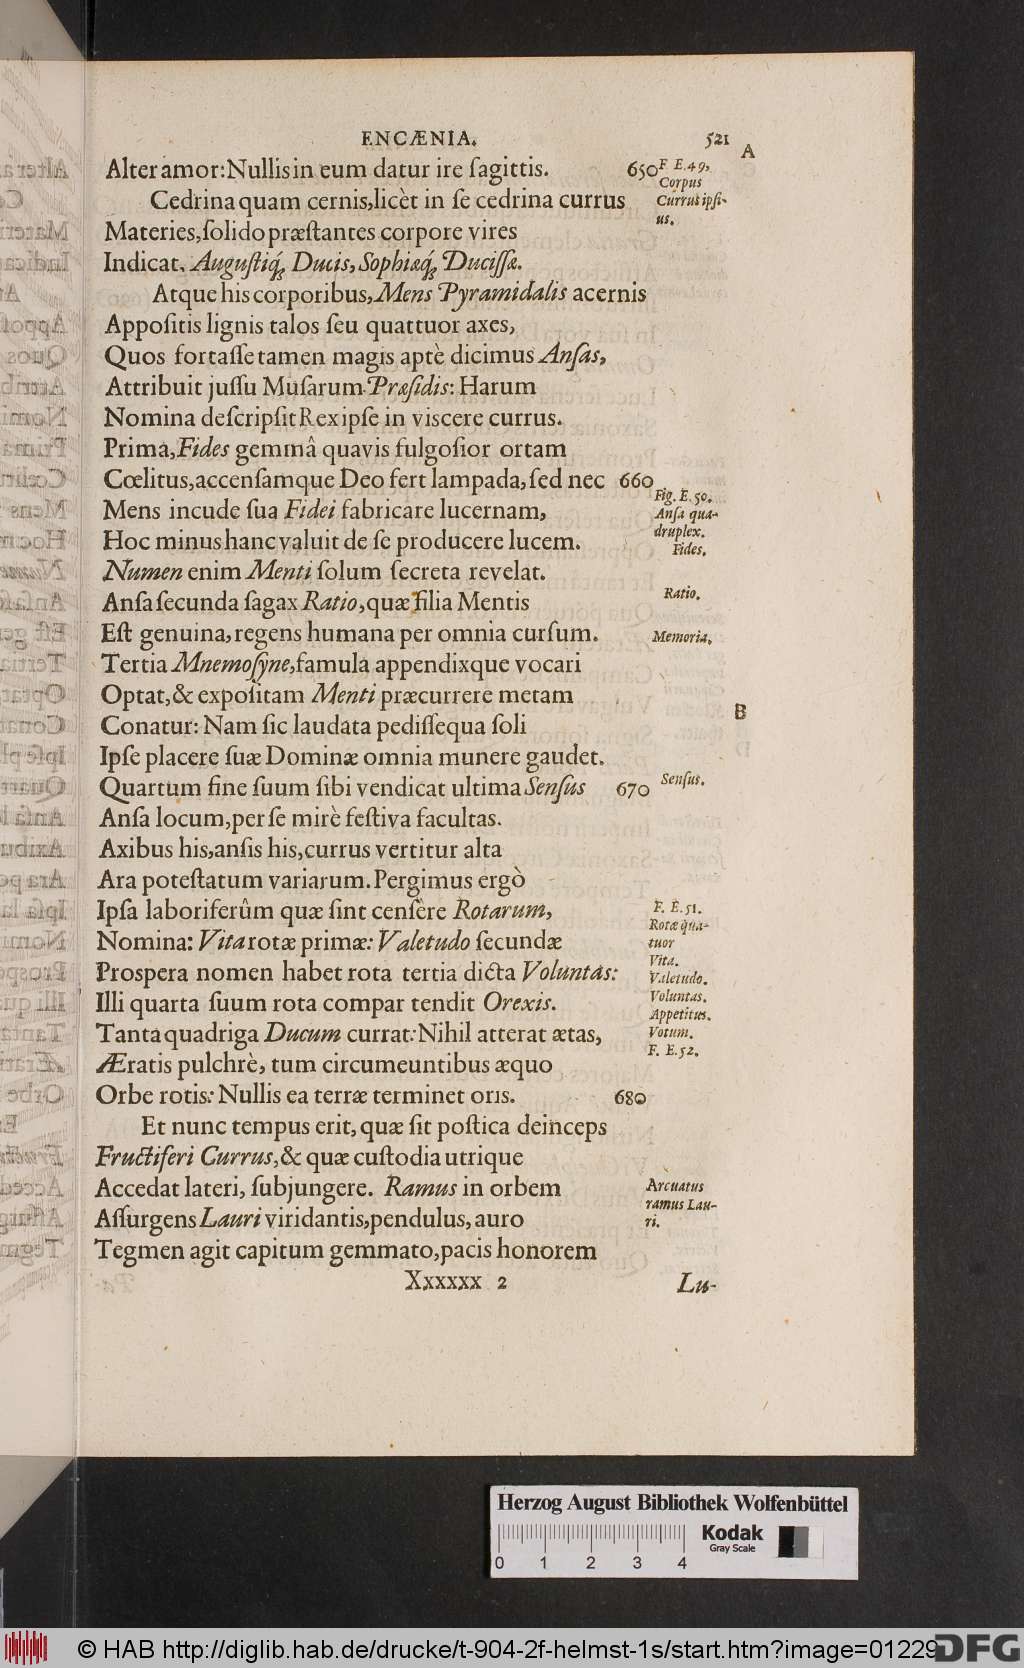 ENCÆNIA. 521
A
Alter amor: Nullis in eum datur ire ſagittis. 650 F E.49,
Corpus
Cedrina quam cernis, licèt in ſe cedrina currus Currus ipſi-
us.
Materies, ſolido præſtantes corpore vires
Indicat. Auguſtiq́; Ducis, Sophiæq́; Duciſſæ.
Atque his corporibus, Mens Pyramidalis acernis
Appoſitis lignis talos ſeu quattuor axes,
Quos fortaſſe tamen magis aptè dicimus Anſas,
Attribuit juſſu Muſarum Præſidis: Harum
Nomina deſcripſit Rex ipſe in viscere currus.
Prima, Fides gemmâ quavis fulgoſior ortam
Cœlitus, accenſamque Deo fert lampada, ſed nec 660
Fig. E. 50.
Mens incude ſua Fidei fabricare lucernam, Anſa qua-
druplex.
Hoc minus hanc valuit de ſe producere lucem. Fides.
Numen enim Menti ſolum ſecreta revelat.
Anſa ſecunda ſagax Ratio, quæ filia Mentis Ratio.
Eſt genuina, regens humana per omnia curſum. Memoria.
Tertia Mnemoſyne, famula appendixque vocari
Optat, & expoſitam Menti præcurrere metam
B
Conatur: Nam ſic laudata pediſſequa ſoli
Ipſe placere ſuæ Dominæ omnia munere gaudet.
Quartum fine ſuum ſibi vendicat ultima Senſus 670 Senſus.
Anſa locum, per ſe mirè feſtiva facultas.
Axibus his, anſis his, currus vertitur alta
Ara poteſtatum variarum. Pergimus ergò
Ipſa laboriferûm quæ ſint cenſère Rotarum, F. E. 51.
Rotæ qua-
Nomina: Vita rotæ primæ: Valetudo ſecundæ tuor
Vita.
Proſpera nomen habet rota tertia dicta Voluntas: Valetudo.
Illi quarta ſuum rota compar tendit Orexis. Voluntas.
Appetitus.
Tanta quadriga Ducum currat: Nihil atterat ætas, Votum.
F. E. 52.
Æratis pulchrè, tum circumeuntibus æquo
Orbe rotis: Nullis ea terræ terminet oris. 680
Et nunc tempus erit, quæ ſit poſtica deinceps
Fructiferi Currus, & quæ cuſtodia utrique
Accedat lateri, ſubjungere. Ramus in orbem Arcuatus
ramus Lau-
Aſſurgens Lauri viridantis, pendulus, auro ri.
Tegmen agit capitum gemmato, pacis honorem
Xxxxxx 2 Lu-
Herzog August Bibliothek Wolfenbüttel
0 1 2 3 4
Kodak
Gray Scale
© HAB http://diglib.hab.de/drucke/t-904-2f-helmst-1s/start.htm?image=01229
DFG